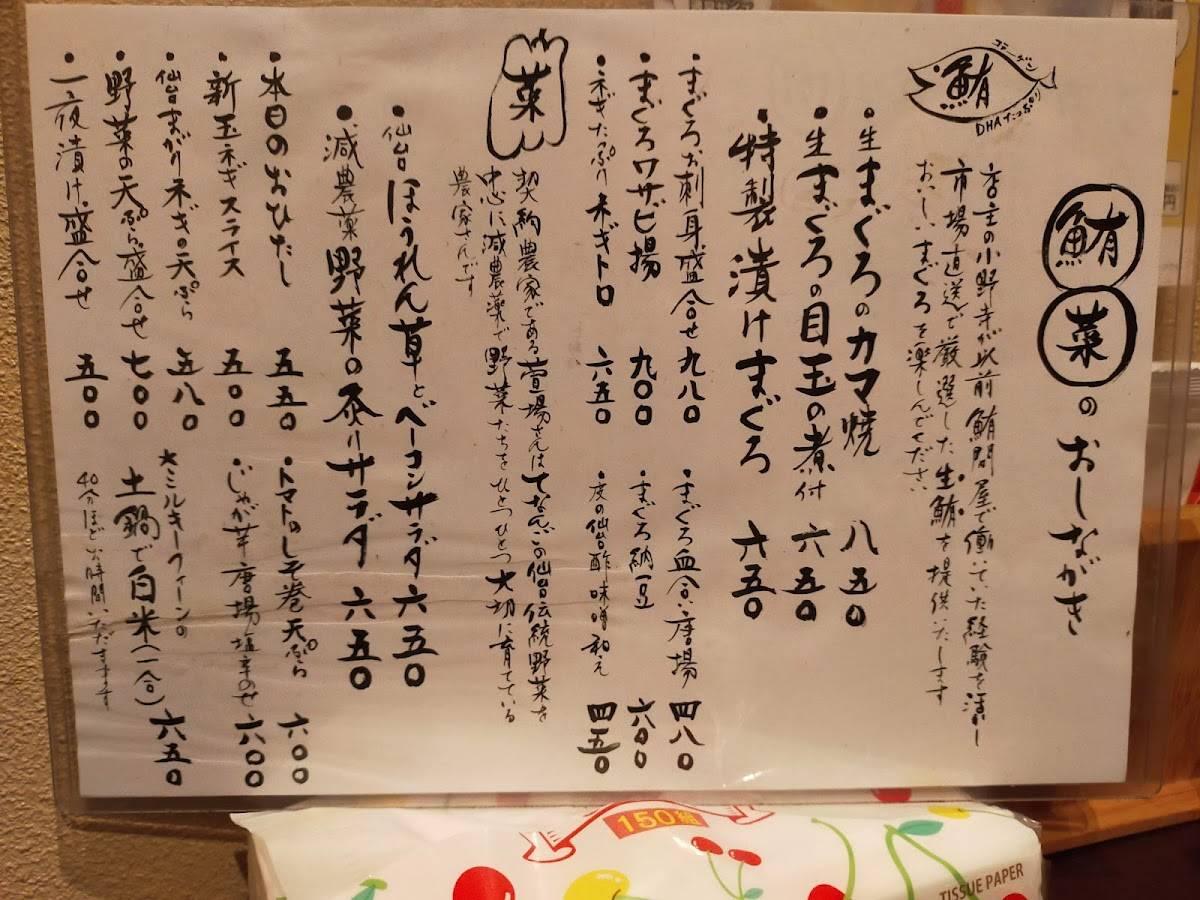 鮪菜のおしながき
コラーゲン
鮪
DHAたっぷり
店主の小野寺が以前鮪問屋で働いていた経験を活かし
市場直送で厳選した生鮪を提供いたします
おいしいまぐろを楽しんでください
・生まぐろのカマ焼 八五〇
・生まぐろの目玉の煮付 六五〇
特製漬けまぐろ 六五〇
・まぐろお刺身盛合せ 九八〇
・まぐろ血合い唐揚 四八〇
・まぐろワサビ揚 九〇〇
・まぐろ納豆 六〇〇
・ネギたっぷりネギトロ 六五〇
・皮の仙台酢味噌和え 四五〇
菜
契約農家である萱場さんはてなんごの仙台伝統野菜を
中心に減農薬で野菜たちをひとつひとつ大切に育てている
農家さんです
・仙台ほうれん草とベーコンサラダ 六五〇
・減農薬野菜の炙りサラダ 六五〇
・本日のおひたし 五五〇
・トマトのしそ巻天ぷら 六〇〇
・新玉ネギスライス 五〇〇
・じゃが芋唐揚塩辛のせ 六〇〇
・仙台まがりネギの天ぷら 五八〇
★ミルキークイーンの
土鍋で白米(一合) 六五〇
40分ほどお時間いただきます
・野菜の天ぷら盛合せ 七〇〇
・一夜漬け盛合せ 五〇〇
150組
TISSUE PAPER